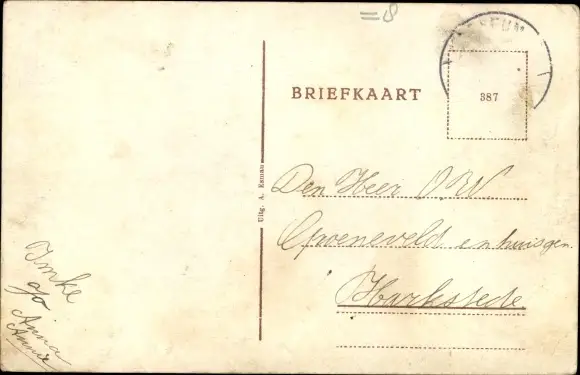 =8
BRIEFKAART
387
Uitg. A. Esman
Den Heer
Groeneveld en huisgen.
Harkstede
Imke
Anna
Annie